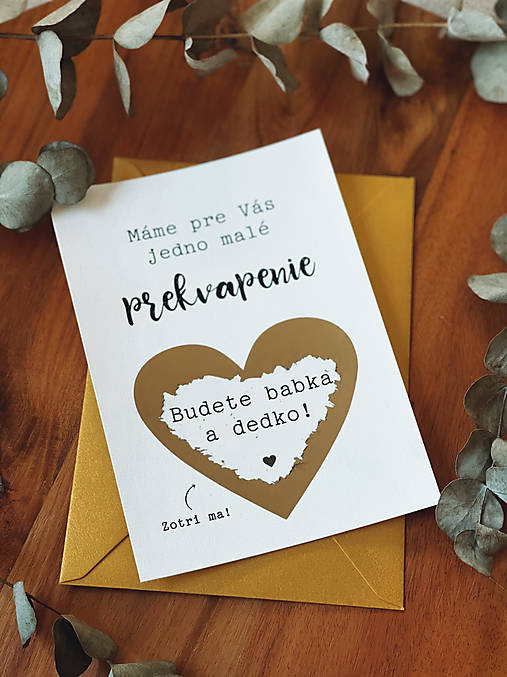 Máme pre Vás
jedno malé
prekvapenie
Budete babka
a dedko!
Zotri ma!